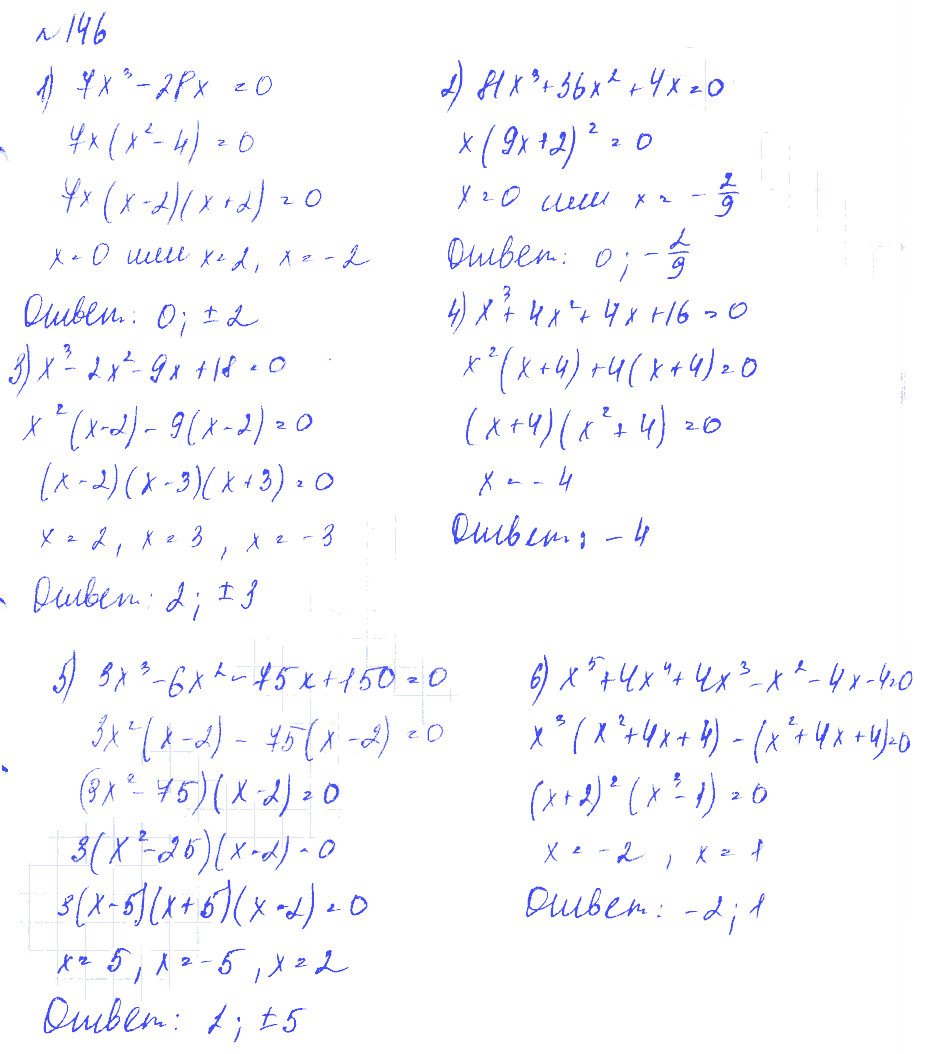 №146
1) 7x³ - 28x = 0
7x(x² - 4) = 0
7x(x-2)(x+2) = 0
x=0 или x=2, x=-2
Ответ: 0; ±2
2) 81x³+36x²+4x=0
x(9x+2)² = 0
x=0 или x = -2/9
Ответ: 0; -2/9
3) x³-2x²-9x+18=0
x²(x-2)-9(x-2)=0
(x-2)(x-3)(x+3)=0
x=2, x=3, x=-3
Ответ: 2; ±3
4) x³+4x²+4x+16=0
x²(x+4)+4(x+4)=0
(x+4)(x²+4)=0
x=-4
Ответ: -4
5) 3x³-6x²-75x+150=0
3x²(x-2)-75(x-2)=0
(3x²-75)(x-2)=0
3(x²-25)(x-2)=0
3(x-5)(x+5)(x-2)=0
x=5, x=-5, x=2
Ответ: 2; ±5
6) x⁵+4x⁴+4x³-x²-4x-4=0
x³(x²+4x+4)-(x²+4x+4)=0
(x+2)²(x³-1)=0
x=-2, x=1
Ответ: -2; 1